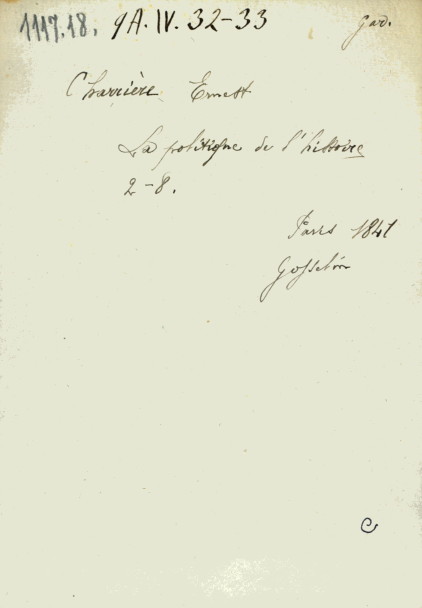 1117.18. 9A.IV.32-33 Gad.
Charrière Ernest
La politique de l'histoire
2-8.
Paris 1841
Gosselin
C